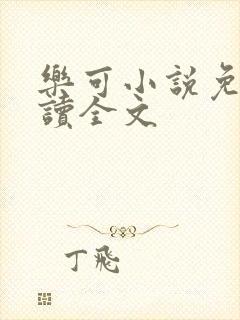 樂可小說免
讀全文
丁飛